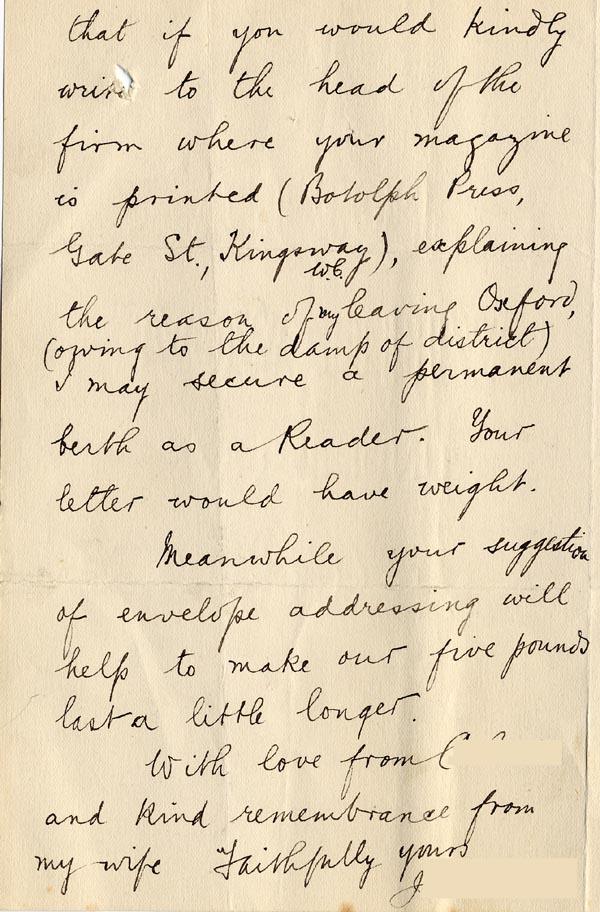 that if you would kindly
write to the head of the
firm where your magazine
is printed (Botolph Press,
Gate St., Kingsway), explaining
W.C.
the reason of my leaving Oxford,
(owing to the damp of district)
I may secure a permanent
berth as a Reader. Your
letter would have weight.
Meanwhile your suggestion
of envelope addressing will
help to make our five pounds
last a little longer.
With love from C
and kind remembrance from
my wife Faithfully yours
J